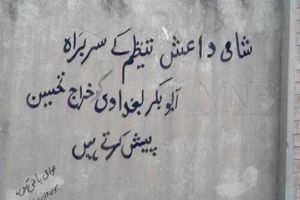 شامی داعش تنظیم کے سربراہ
ابو بکر بغدادی کو خراج تحسین
پیش کرتے ہیں